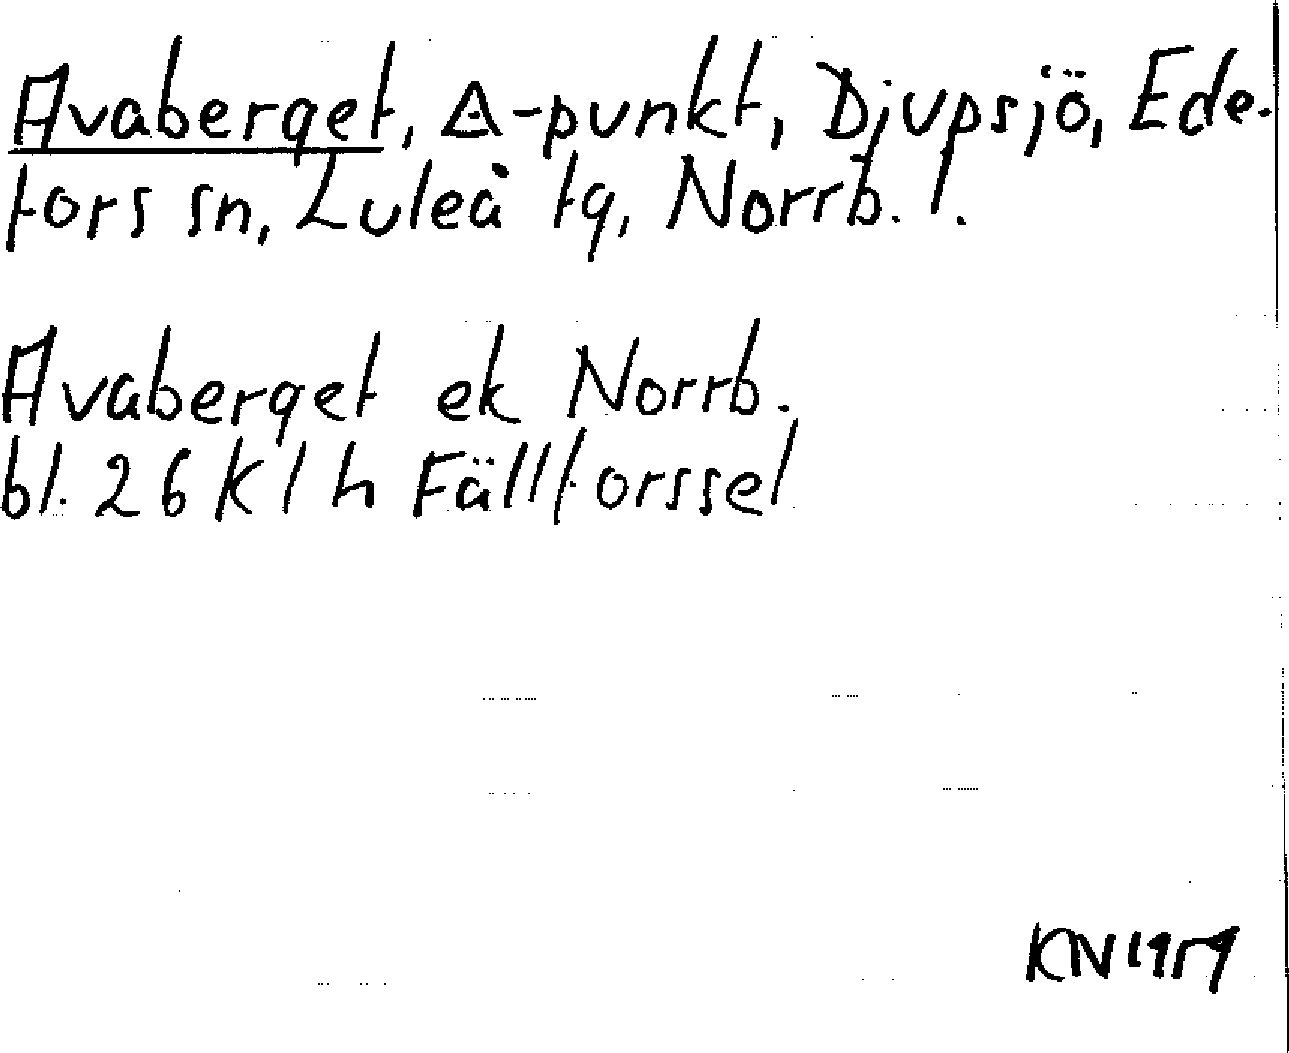 Avaberget, △-punkt, Djupsjö, Ede-
fors sn, Luleå tg, Norrb. l.
Avaberget ek Norrb.
bl. 26 K 1 h Fällforssel
KN 1959